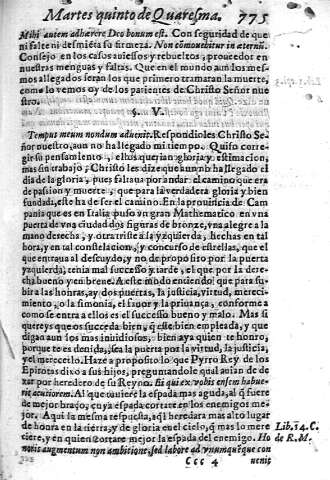 Martes quinto de Quaresma. 775
Mihi autem adhærere Deo bonum est. Con seguridad de que
ni falte ni desmieta su firmeza. Non comouebitur in æternũ.
Consejo en los casos auiessos y rebueltos, y proceder en
nuestras menguas y faltas. Que en el mundo aun los mes-
mos allegados seràn los que primero trataràn la muerte,
como lo vemos oy de los parientes de Christo Señor nue
stro.
§. V.
Tempus meum nondum aduenit. Respondioles Christo Se
ñor nuestro, aun no ha llegado mi tiempo. Quiso corre-
gir su pensamiento, ellos querian gloria y estimacion,
mas sin trabajo, Christo les dize que aun no ha llegado el
dia de la gloria, pues faltaua por andar el camino que era
de passion y muerte, que para la verdadera gloria y bien
fundada, este ha de ser el camino. En la prouincia de Cam
pania que es en Italia puso vn gran Mathematico en vna
puerta de vna ciudad dos figuras de bronze, vna alegre a la
mano derecha, y otra triste a la yzquierda, hechas en tal
hora, y en tal constelacion, y concurso de estrellas, que el
que entraua al descuydo, y no de proposito por la puerta
yzquierda, tenia mal successo y tarde, el que por la dere-
cha bueno y en breue. A este modo entiendo que para su-
bir a las honras, ay dos puertas, la justicia, virtud, mereci-
miento, o la simonia, el fauor y la priuança, conforme a
como se entra a ellos es el successo bueno y malo. Mas si
quereys que os succeda bien, q̃ estè bien empleada, y que
digan aun los mas inuidiosos, bien aya quien te honro,
porque te es deuida, sea la puerta por la virtud, la justicia,
y el merecello. Haze a proposito lo que Pyrro Rey de los
Epirotas dixo a sus hijos, preguntandole qual auian de de-
xar por heredero de su Reyno. Ei qui ex vobis ensem habue-
rit acutiorem. Al que tuuiere la espada mas aguda, al q̃ fuere
de mejor braço, cuya espada cortare en los enemigos me-
jor. Aqui la misma respuesta, aql heredara mas alto lugar
de honra en la tierra, y de gloria en el cielo, q̃ mas lo mere
ciere, y en quien cortare mejor la espada del enemigo. Ho
Lib. 14. C.
de R. M.
noris augmentum non ambitione, sed labore ad vnumquẽque con
Ccc 4 uenit